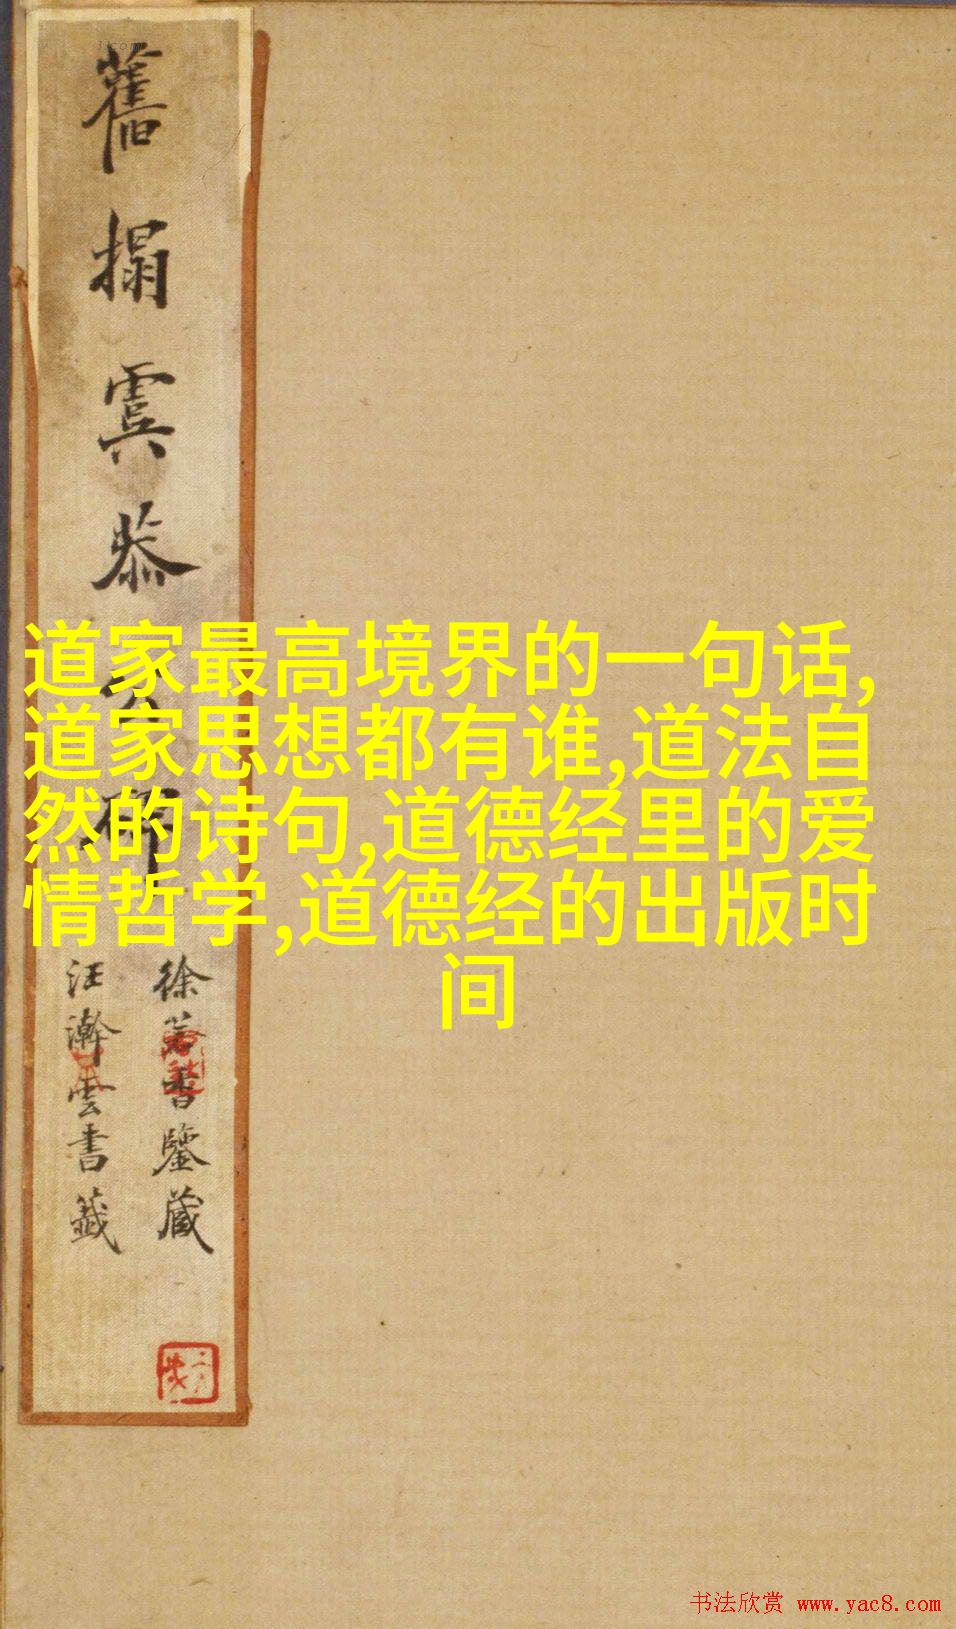 舊搨虞恭公碑
道家最高境界的一句话,
道家思想都有谁,道法自
然的诗句,道德经里的爱
情哲学,道德经的出版时
间
徐鑒藏
汪澣雲書籤
书法欣赏 www.yac8.com